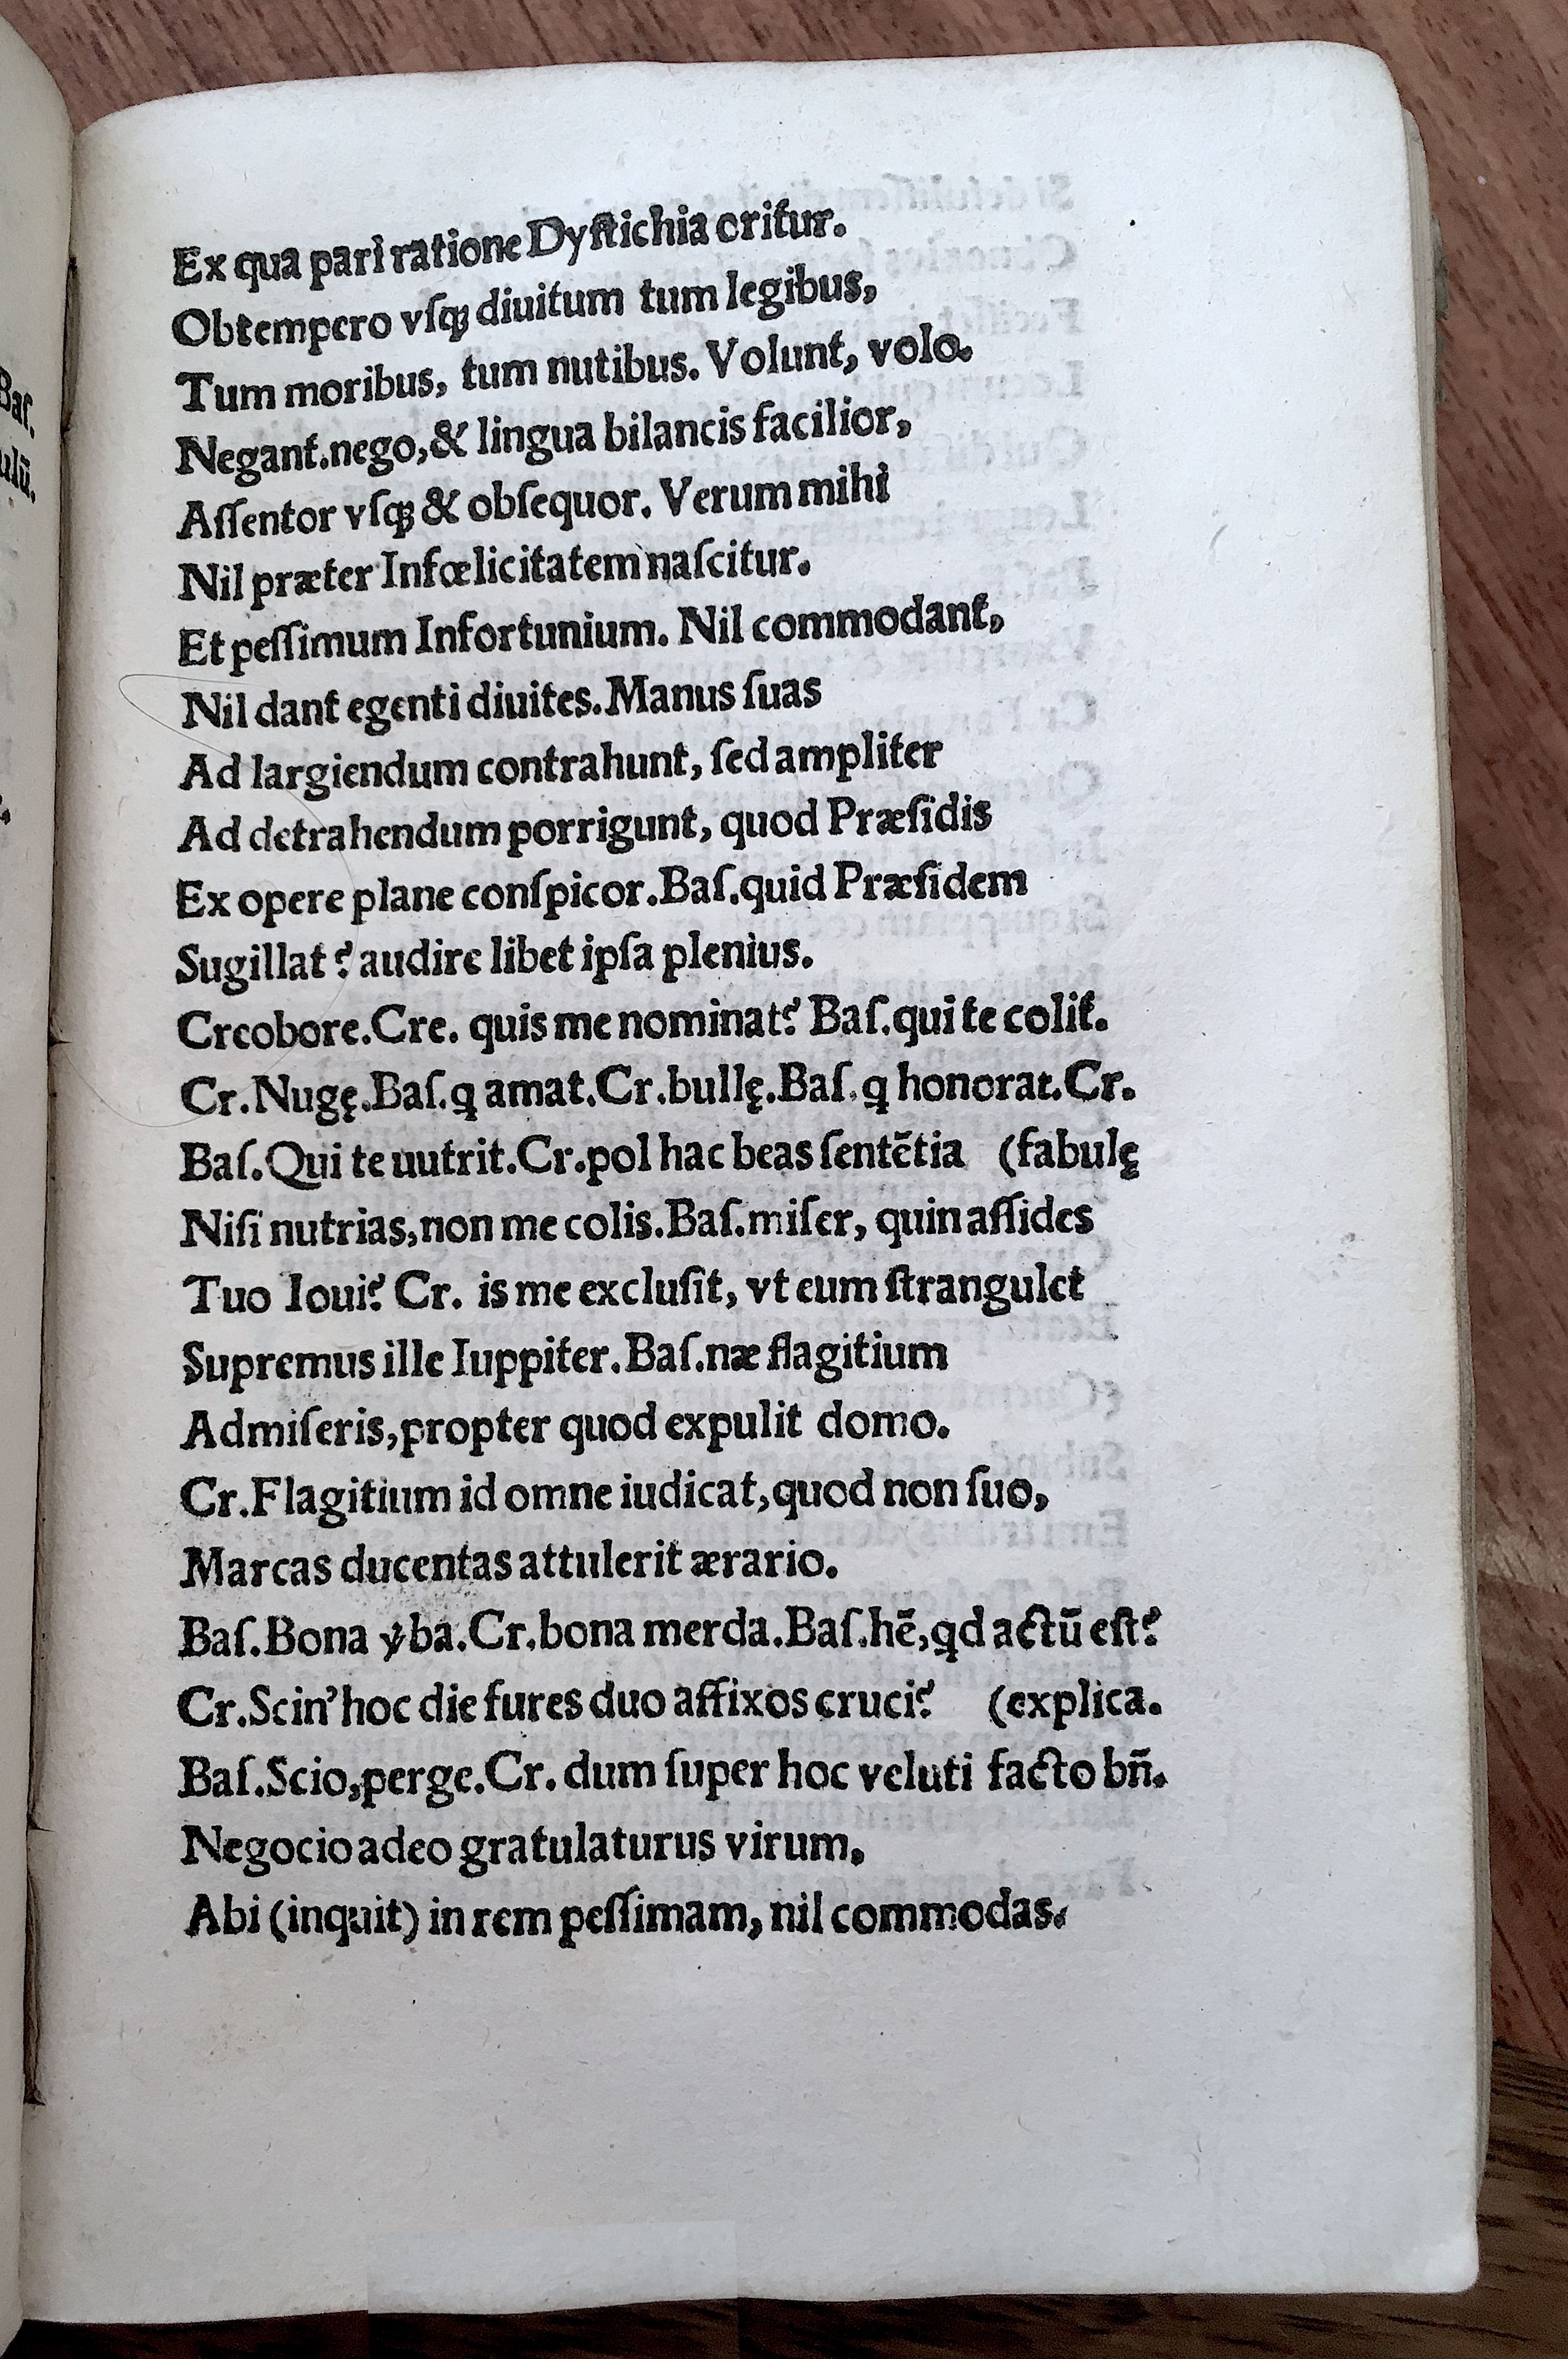 Baſ.
ulū.
Ex qua pari ratione Dyſtichia oritur.
Obtempero vſq; diuitum tum legibus,
Tum moribus, tum nutibus. Volunt, volo.
Negant.nego,& lingua bilancis facilior,
Aſſentor vſq; & obſequor. Verum mihi
Nil præter Infœlicitatem naſcitur.
Et peſſimum Infortunium. Nil commodant,
Nil dant egenti diuites.Manus ſuas
Ad largiendum contrahunt, ſed ampliter
Ad detrahendum porrigunt, quod Præſidis
Ex opere plane conſpicor.Baſ.quid Præſidem
Sugillat? audire libet ipſa plenius.
Creobore.Cre. quis me nominat? Baſ.qui te colit.
Cr.Nugę.Baſ.q amat.Cr.bullę.Baſ.q honorat.Cr.
Baſ.Qui te uutrit.Cr.pol hac beas ſentētia (fabulę
Niſi nutrias,non me colis.Baſ.miſer, quin aſſides
Tuo Ioui? Cr. is me excluſit, vt eum ſtrangulet
Supremus ille Iuppiter.Baſ.næ flagitium
Admiſeris,propter quod expulit domo.
Cr.Flagitium id omne iudicat,quod non ſuo,
Marcas ducentas attulerit ærario.
Baſ.Bona ꝟba.Cr.bona merda.Baſ.hē,qd actū eſt?
Cr.Scin'hoc die fures duo affixos cruci? (explica.
Baſ.Scio,perge.Cr. dum ſuper hoc veluti facto bn̄.
Negocio adeo gratulaturus virum,
Abi (inquit) in rem peſſimam, nil commodas.